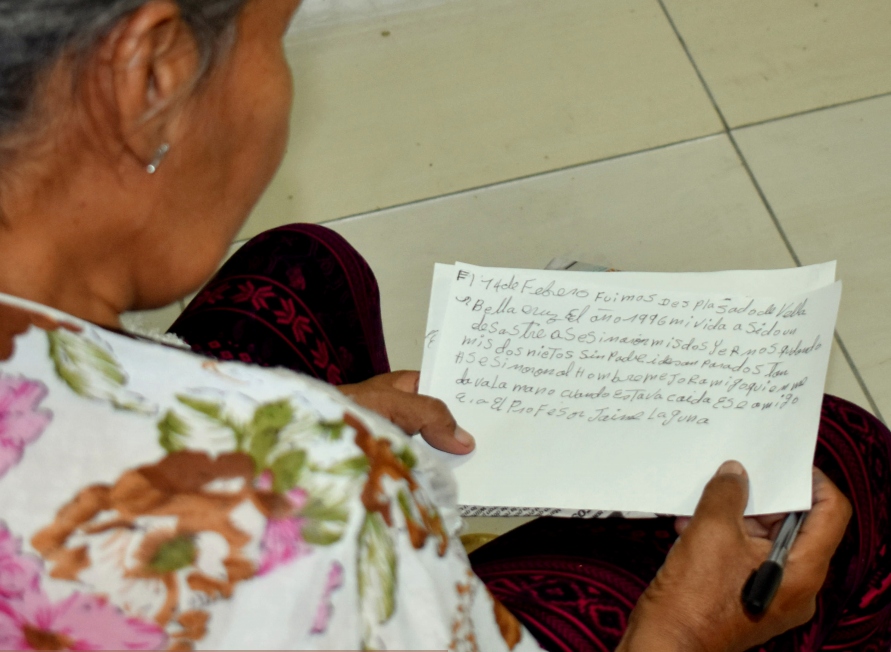 El 14 de Febrero Fuimos Des plasado de Vella
Bella cruz El año 1996 mi vida a sido un
desastre asesinaron mis dos yernos quedando
mis dos nietos sin Padre i desan Parados tan
Asesinaron al Hombre mejor amigo quien me
dava la mano cuando Estava caida Ese amigo
El Profesor Jaime Laguna